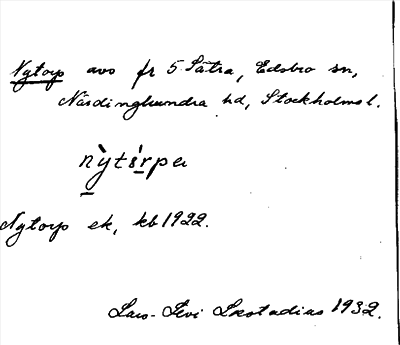 Nytorp avs fr 5 Sätra, Edsbro sn,
Närdinghundra hd, Stockholms l.
Nytorp ek, kb 1922.
Lars-Levi Læstadius 1932.